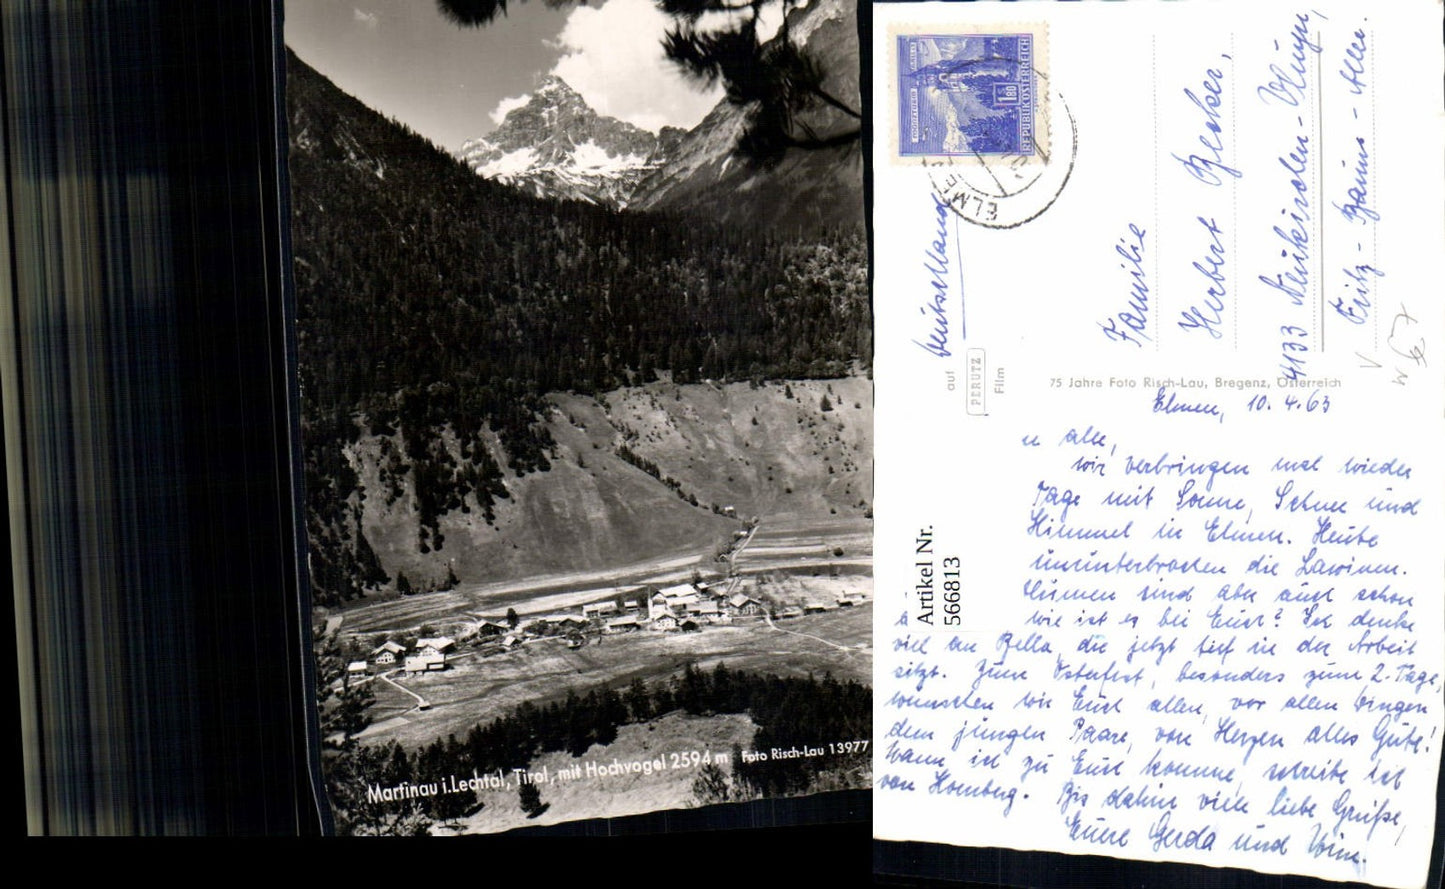 Martinau i.Lechtal, Tirol, mit Hochvogel 2594 m Foto Risch-Lau 13977
REPUBLIK ÖSTERREICH
1.80
ELMEN
Deutschland
Familie
Herbert Becker,
4133 Neukirchen-Vluyn,
Fritz-Baum-Allee.
auf
PERUTZ
Film
75 Jahre Foto Risch-Lau, Bregenz, Österreich
Artikel Nr.
566813
Elmen, 10.4.63
alle,
wir verbringen mal wieder
Tage mit Sonne, Schnee und
Himmel in Elmen. Heute
ununterbrochen die Lawinen.
Blumen sind aber auch schon
wie ist es bei Euch? Ich denke
viel an Bella, die jetzt tief in der Arbeit
sitzt. Zum Osterfest, besonders zum 2. Tage,
wünschen wir Euch allen, vor allen Dingen
dem jungen Paare, von Herzen alles Gute!
Wann ich zu Euch komme, schreibe ich
von Homberg. Bis dahin viele liebe Grüße,
Eure Gerda und